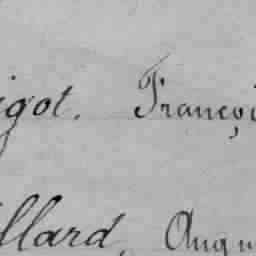 igot. Françoi
llard, Augu